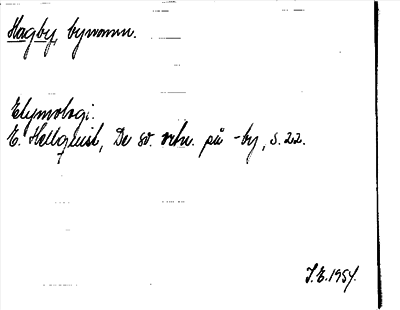 Hagby, bynamn.
Etymologi.
E. Hellquist, De sv. ortn. på -by, s. 22.
J.E. 1954.